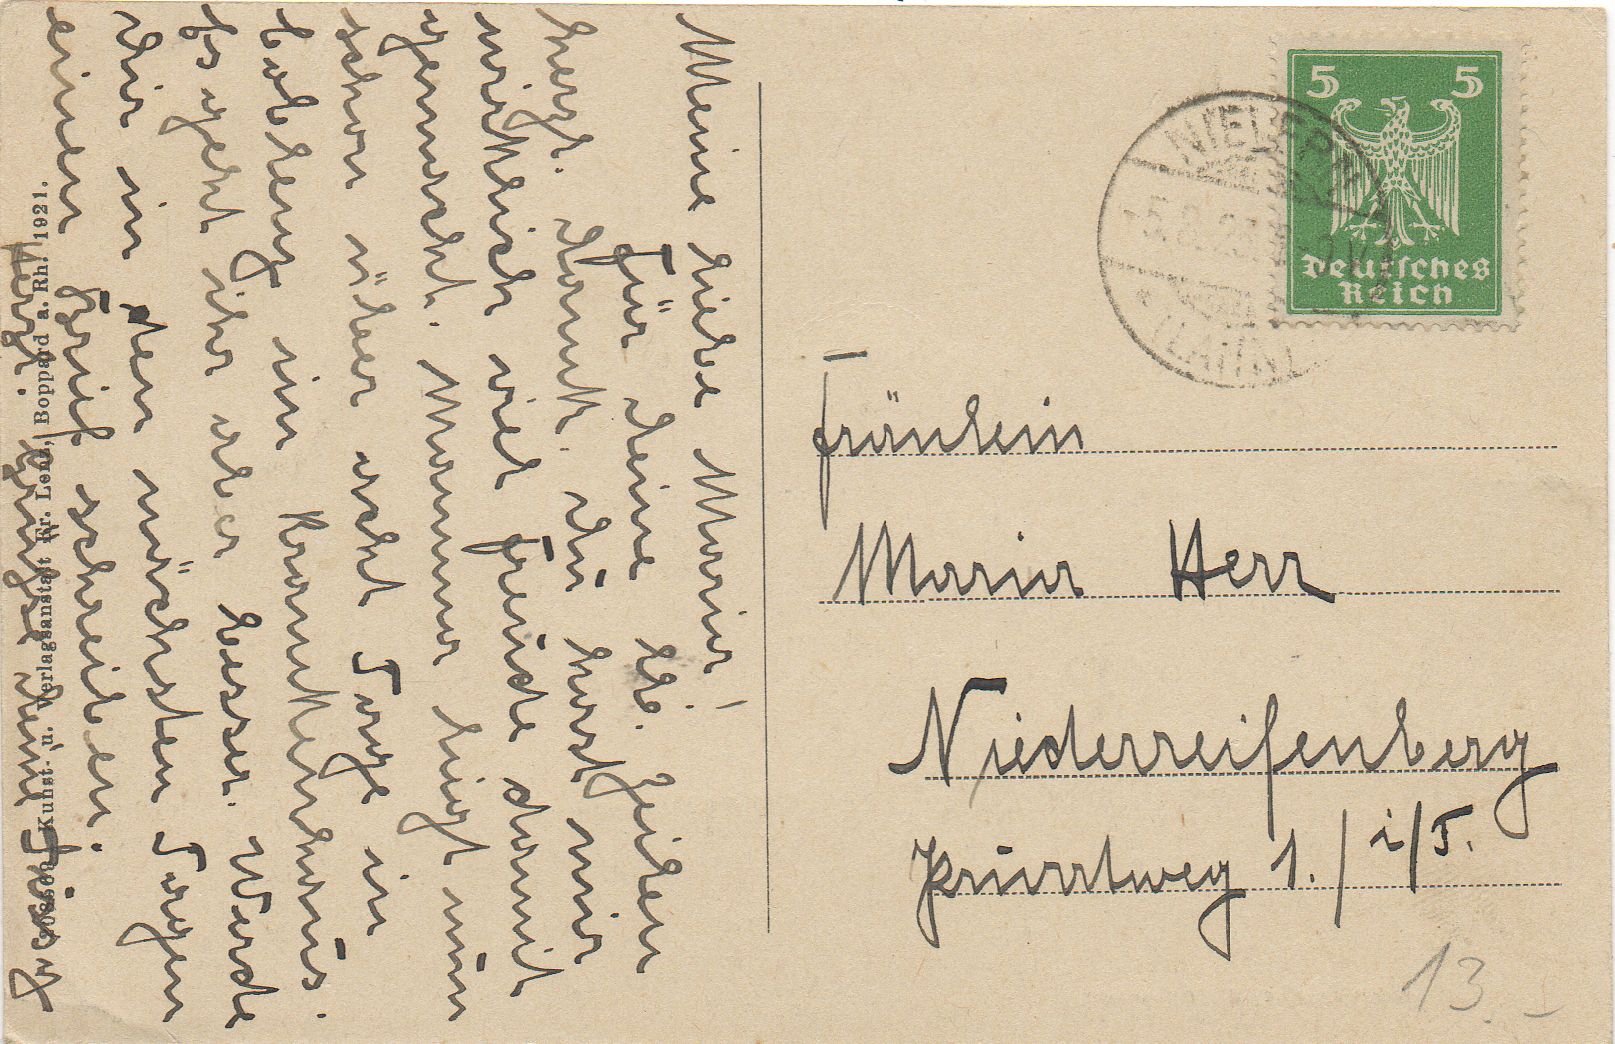 Meine liebe Maria!
Für deine lb. Zeilen
herzl. Dank. Du hast mir
wirklich viel Freude damit
gemacht. Mama liegt nun
schon über acht Tage in
Coblenz im Krankenhaus.
Es geht ihr aber besser. Werde
dir in den nächsten Tagen
einen Brief schreiben.
Kunst- u. Verlagsanstalt Fr. Lenz, Boppard a. Rh. 1921.
5 5
Deutsches
Reich
NIEVERN
(LAHN)
Fräulein
Maria Herr
Niederreifenberg
Brunhildweg 1. / i/T.
13.-